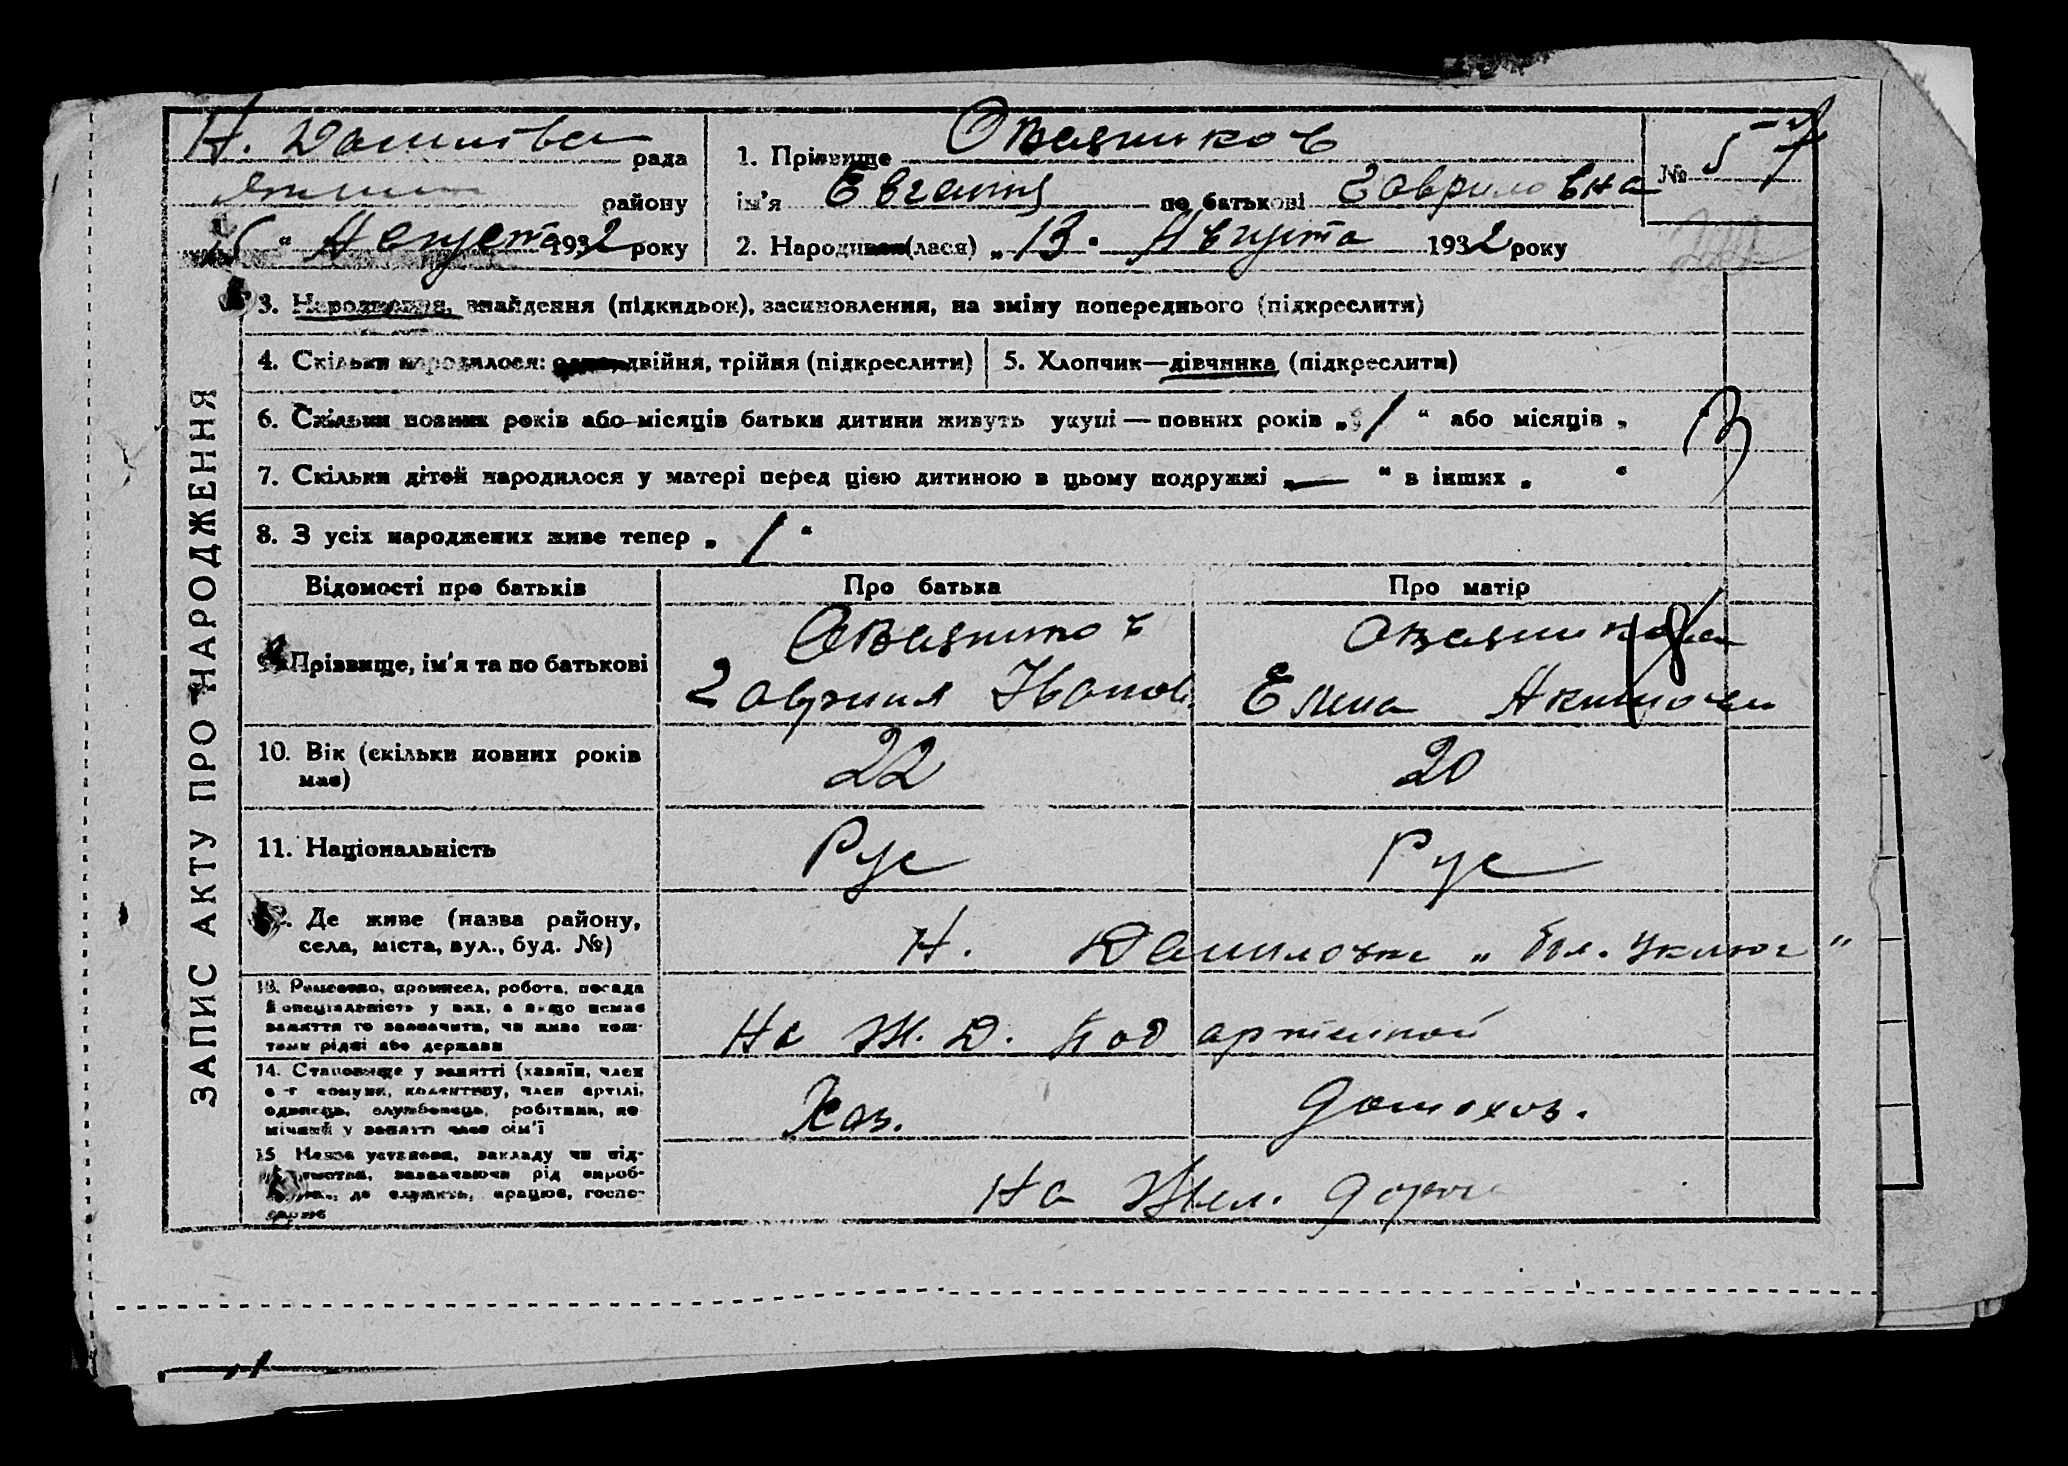 Н. Данилов рада
району
15 " Августа 1932 року
1. Прізвище Овсянников
ім'я Евгения по батькові Гавриловна
№ 57
2. Народився (лася) „ 13 " Августа 1932 року
ЗАПИС АКТУ ПРО НАРОДЖЕННЯ
3. Народження, знайдення (підкидьок), засиновлення, на зміну попереднього (підкреслити)
4. Скільки народилося: одно, двійня, трійня (підкреслити)
5. Хлопчик—дівчинка (підкреслити)
6. Скільки повних років або місяців батьки дитини живуть укупі — повних років „ 1 " або місяців „
7. Скільки дітей народилося у матері перед цією дитиною в цьому подружжі „ — " в інших „ "
8. З усіх народжених живе тепер „ 1 "
Відомості про батьків Про батька Про матір
9. Прізвище, ім'я та по батькові
Гавриил Иванов.
Елена
10. Вік (скільки повних років має) 22 20
11. Національність Рус Рус
12. Де живе (назва району, села, міста, вул., буд. №)
Н. Даниловка
13. Ремесство, промисел, робота, посада
й спеціальність у них, а якщо немає
заняття то зазначити, чи живе кош-
тами рідні або держави
На Ж. Д.
14. Становище у занятті (хазяїн, член
с-г комуни, колективу, член артілі,
одинець, службовець, робітник, по-
мічний у занятті член сім'ї
Хоз. домохоз.
15. Назва установи, закладу чи під-
приємства, зазначаючи рід вироб-
де служить, працює, госпо-
дарює
На Жел. дороге